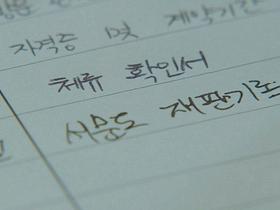 자격증 및 제약기간
체류 확인서
서문도 재판기록